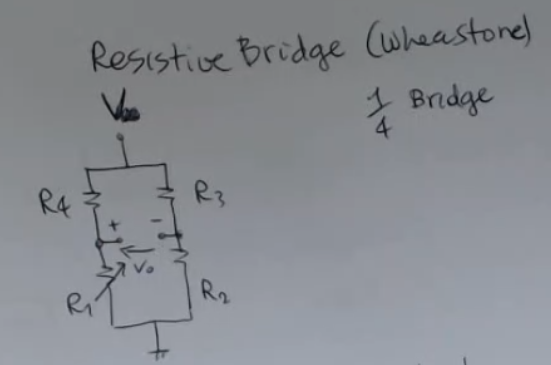 Resistive Bridge (Wheastone)
1/4 Bridge
R4
R3
+
-
Vo
R1
R2